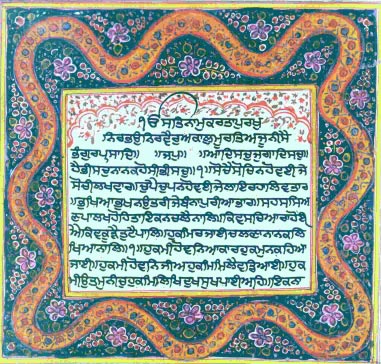 ੴ ਸਤਿਨਾਮੁਕਰਤਾਪੁਰਖੁ
ਨਿਰਭਉਨਿਰਵੈਰੁਅਕਾਲਮੂਰਤਿਅਜੂਨੀਸੈ
ਭੰਗੁਰਪ੍ਰਸਾਦਿ॥ ॥ਜਪੁ॥ ॥ਆਦਿਸਚੁਜੁਗਾਦਿਸਚੁ॥
ਹੈਭੀਸਚੁਨਾਨਕਹੋਸੀਭੀਸਚੁ॥੧॥ਸੋਚੈਸੋਚਿਨਹੋਵਈਜੇ
ਸੋਚੀਲਖਵਾਰ॥ਚੁਪੈਚੁਪਨਹੋਵਈਜੇਲਾਇਰਹਾਲਿਵਤਾਰ
॥ਭੁਖਿਆਭੁਖਨਉਤਰੀਜੇਬੰਨਾਪੁਰੀਆਭਾਰ॥ਸਹਸਸਿਆ
ਣਪਾਲਖਹੋਹਿਤਾਇਕਨਚਲੈਨਾਲਿ॥ਕਿਵਸਚਿਆਰਾਹੋਈ
ਐਕਿਵਕੂੜੈਤੁਟੈਪਾਲਿ॥ਹੁਕਮਿਰਜਾਈਚਲਣਾਨਾਨਕਲਿ
ਖਿਆਨਾਲਿ॥੧॥ਹੁਕਮੀਹੋਵਨਿਆਕਾਰਹੁਕਮੁਨਕਹਿਆ
ਜਾਈ॥ਹੁਕਮੀਹੋਵਨਿਜੀਅਹੁਕਮਿਮਿਲੈਵਡਿਆਈ॥ਹੁਕ
ਮੀਉਤਮੁਨੀਚੁਹੁਕਮਿਲਿਖਿਦੁਖਸੁਖਪਾਈਅਹਿ॥ਇਕਨਾ